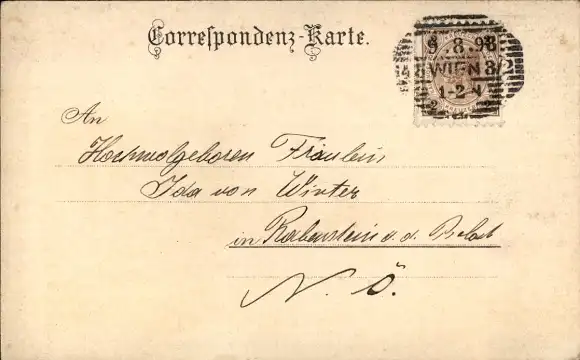 Correspondenz-Karte.
9. 8. 98
WIEN 8/2
1-2 N
2 2
An
Hochwolgeboren Fräulein
Ida von Winter
in Rabenstein a. d.
N. Ö.